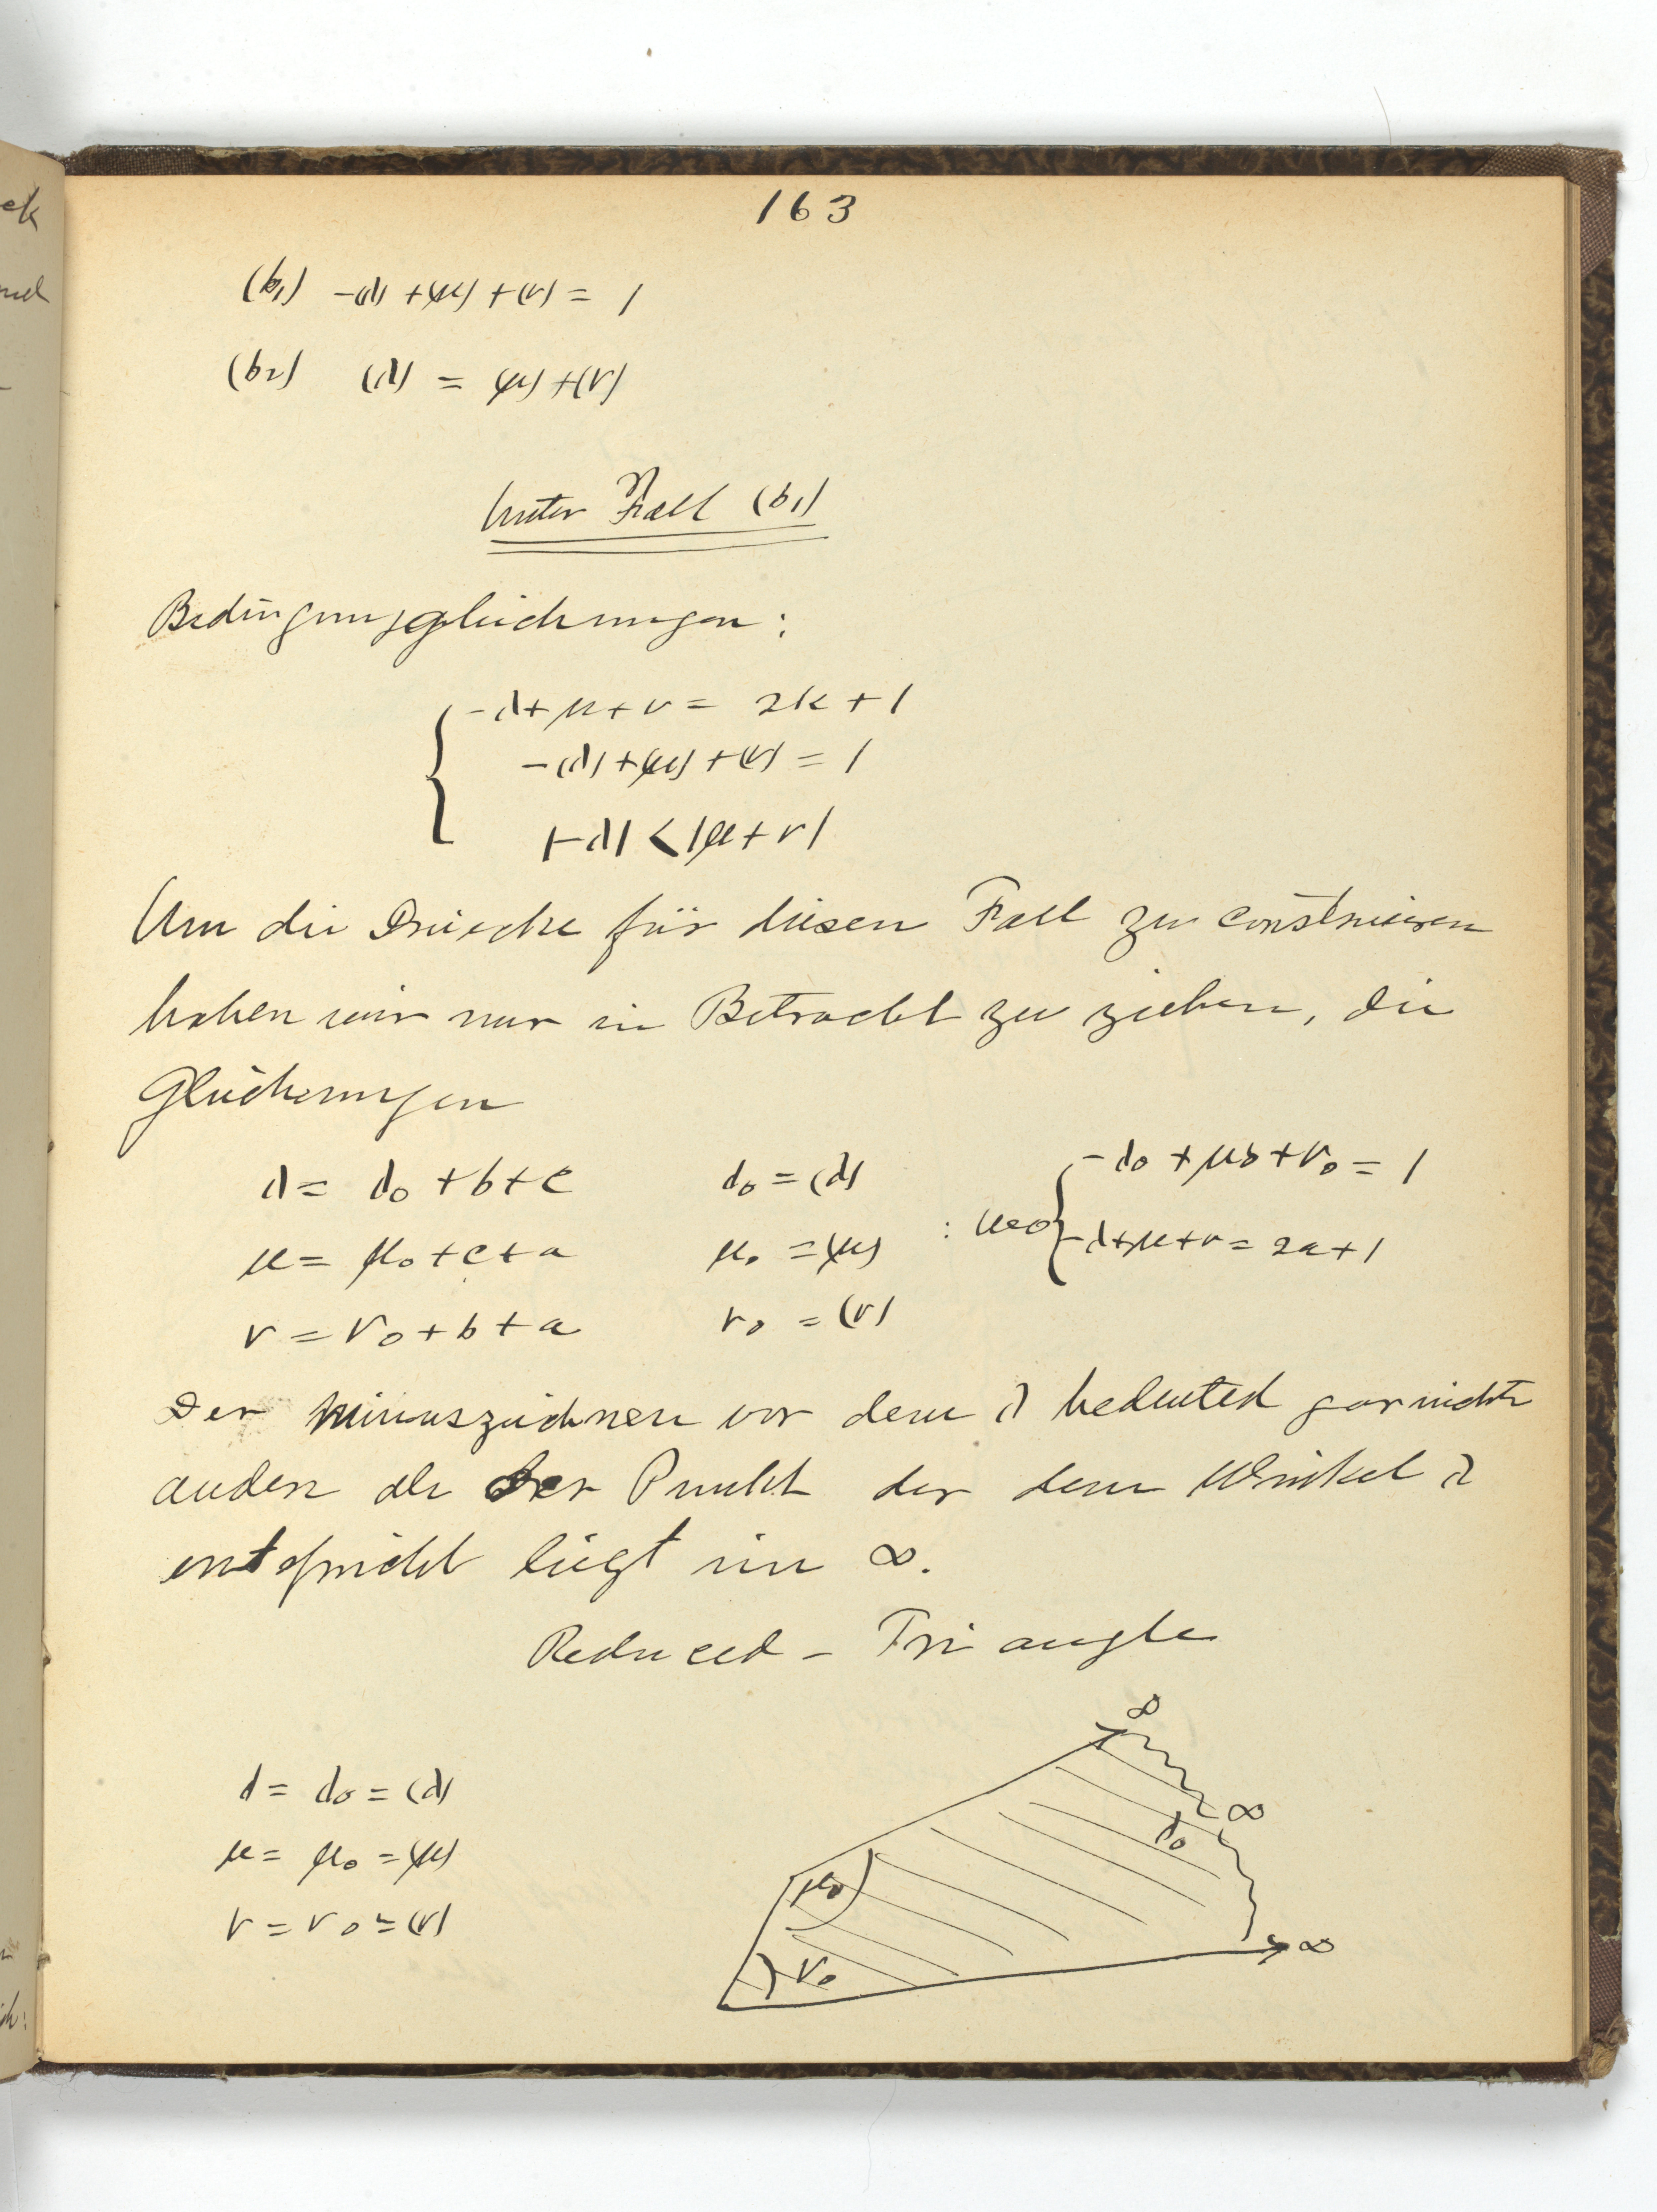 163
(b₁) -(λ) + (μ) + (ν) = 1
(b₂) (λ) = (μ) + (ν)
Unter Fall (b₁)
Bedingungsgleichungen:
-λ + μ + ν = 2k + 1
-(λ) + (μ) + (ν) = 1
|-λ| < |μ + ν|
Um die Dreiecke für diesen Fall zu construieren
haben wir nur in Betracht zu ziehen, die
Gleichungen
λ = λ₀ + b + c λ₀ = (λ) -λ₀ + μ₀ + ν₀ = 1
μ = μ₀ + c + a μ₀ = (μ) : wo -λ + μ + ν = 2a + 1
ν = ν₀ + b + a ν₀ = (ν)
Der minuszeichnen vor dem λ bedeuted gar nichts
anders als der Punkt der dem Winkel λ
entspricht liegt im ∞.
Reduced - Triangle
λ = λ₀ = (λ)
μ = μ₀ = (μ)
ν = ν₀ = (ν)
∞
∞
λ₀
μ₀
ν₀
∞